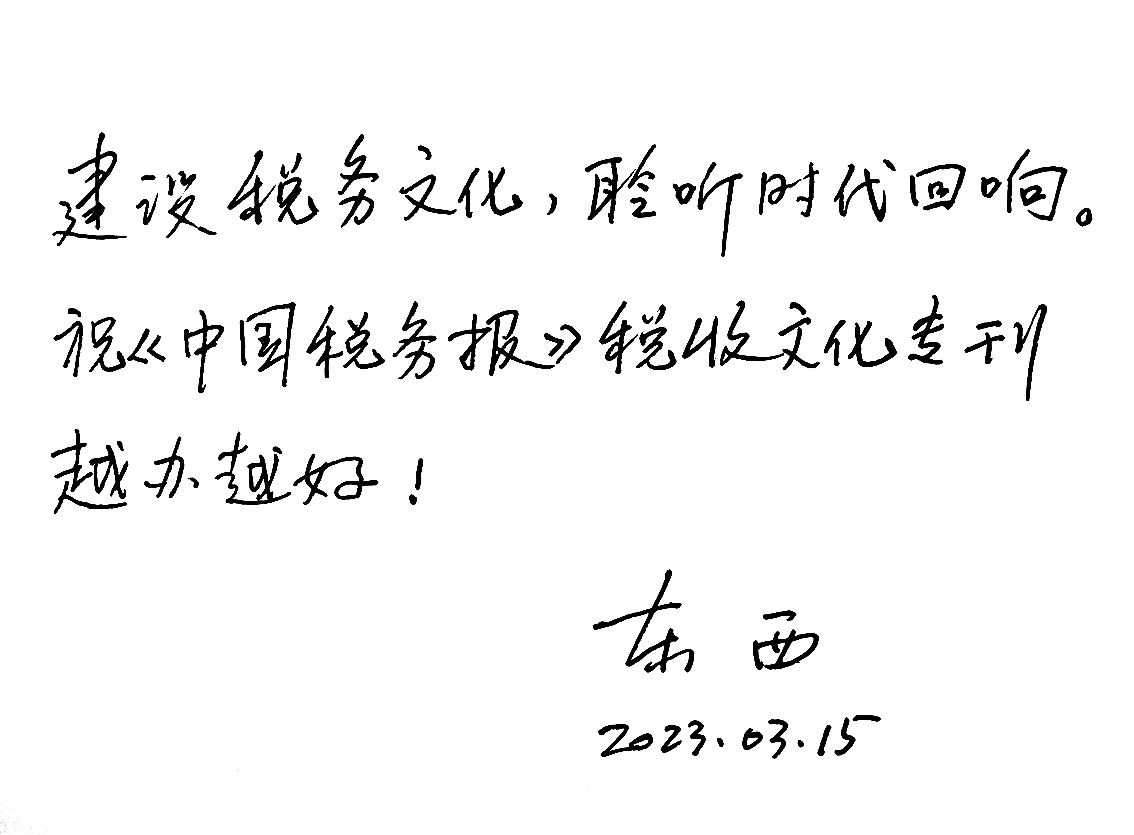 建设税务文化，聆听时代回响。
祝《中国税务报》税收文化专刊
越办越好！
东西
2023.03.15